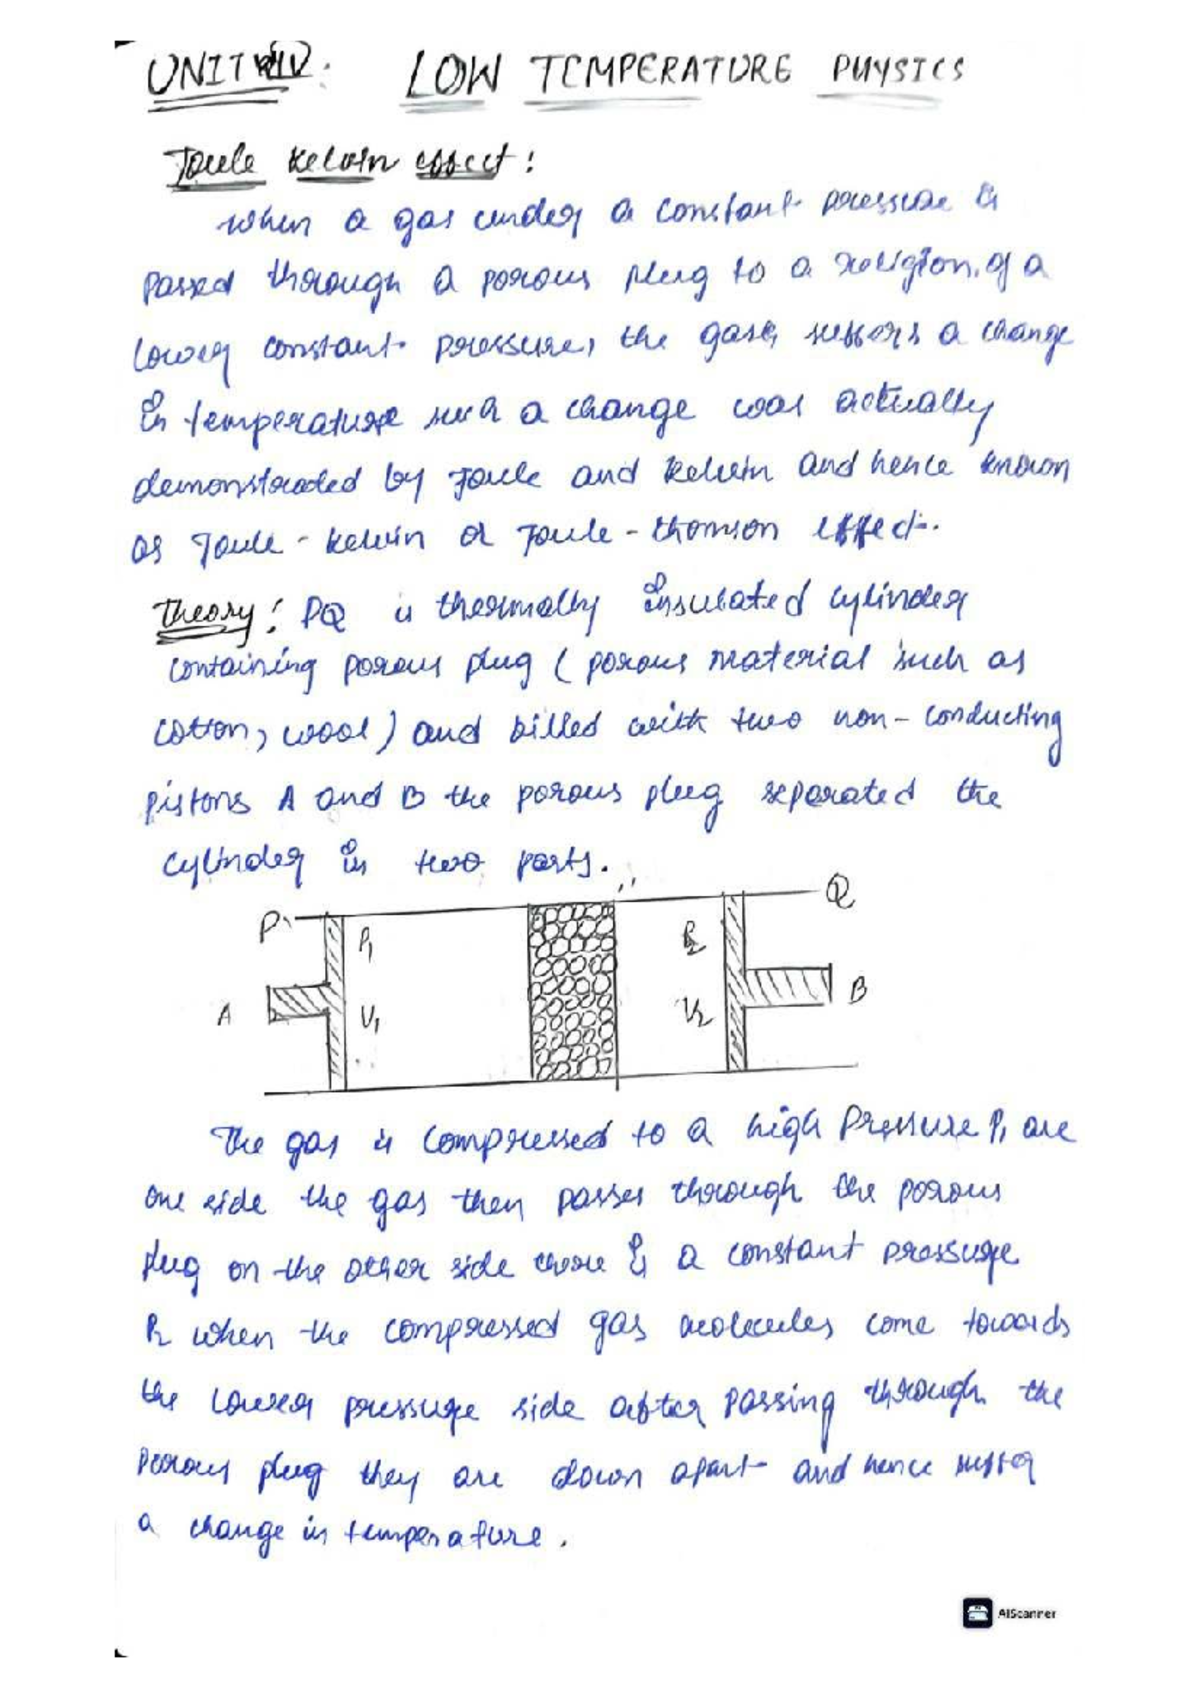 UNIT IV: LOW TEMPERATURE PHYSICS
Joule Kelvin effect:
when a gas under a constant pressure is
passed through a porous plug to a religion of a
lower constant pressure, the gas suffers a change
in temperature such a change was actually
demonstrated by Joule and Kelvin and hence known
as Joule - kelvin or Joule - thomson effect.
Theory: PQ is thermally insulated cylinder
containing porous plug (porous material such as
cotton, wool) and filled with two non-conducting
pistons A and B the porous plug separated the
cylinder in two parts.
P Q
P1 P2
A V1 V2 B
The gas is compressed to a high Pressure P1 are
one side the gas then passes through the porous
plug on the other side there is a constant pressure
P2 when the compressed gas molecules come towards
the lower pressure side after passing through the
porous plug they are down apart and hence suffer
a change in temperature.
AIScanner